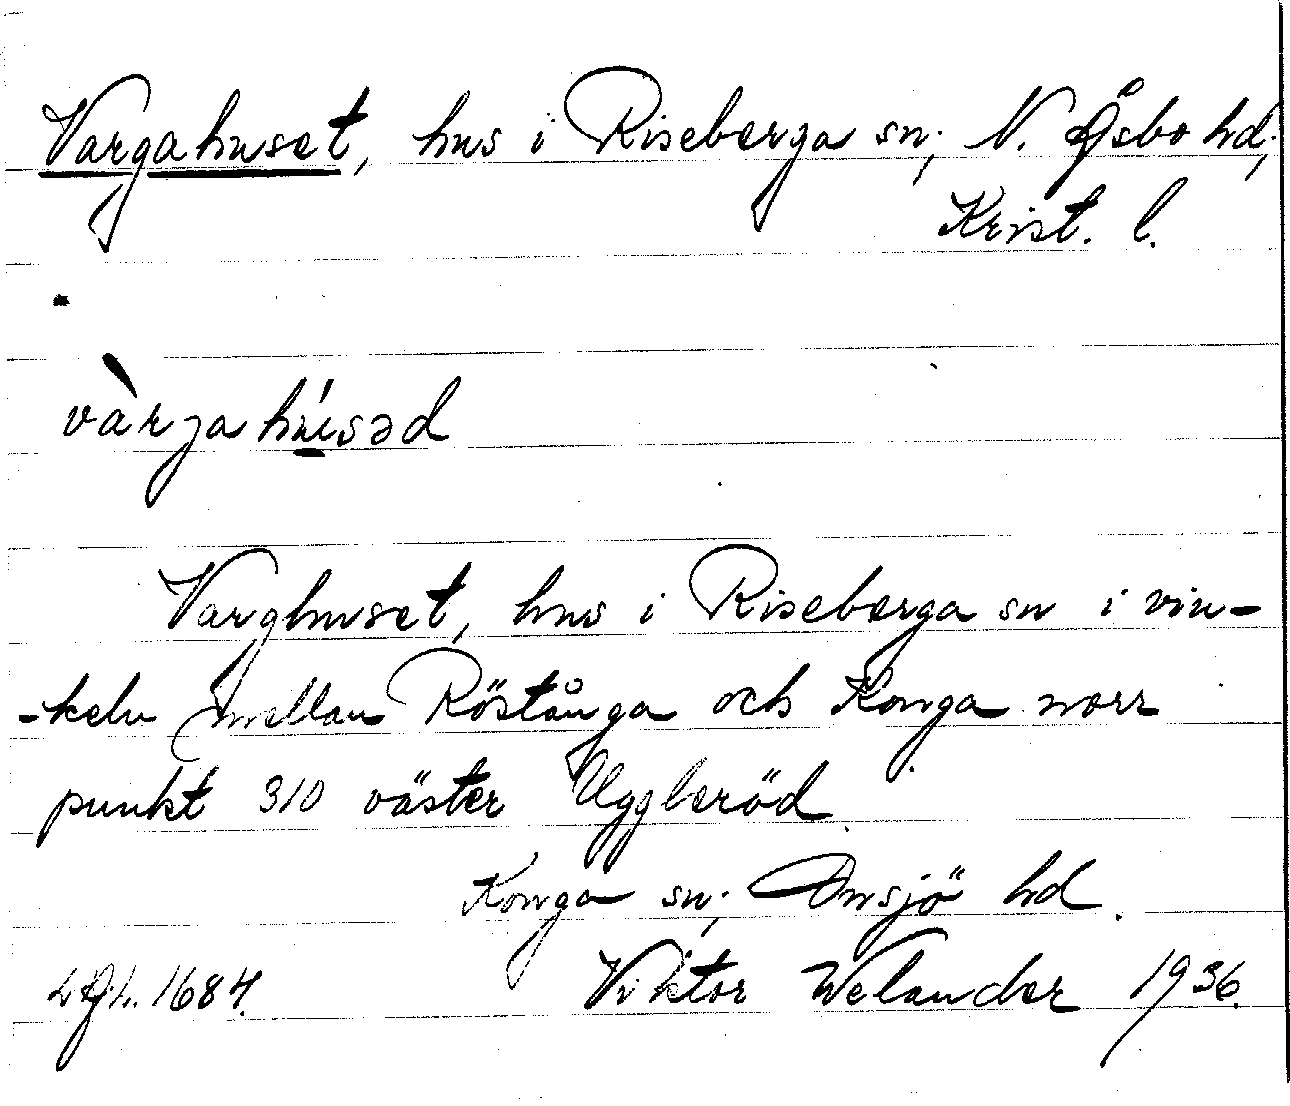 Vargahuset, hus i Riseberga sn; N. Åsbo hd;
Krist. l.
vàrjahúsəd
Varghuset, hus i Riseberga sn i vin-
-keln mellan Röstånga och Konga norr
punkt 310 väster Uggleröd.
Konga sn; Onsjö hd.
1684. Viktor Welander 1936.